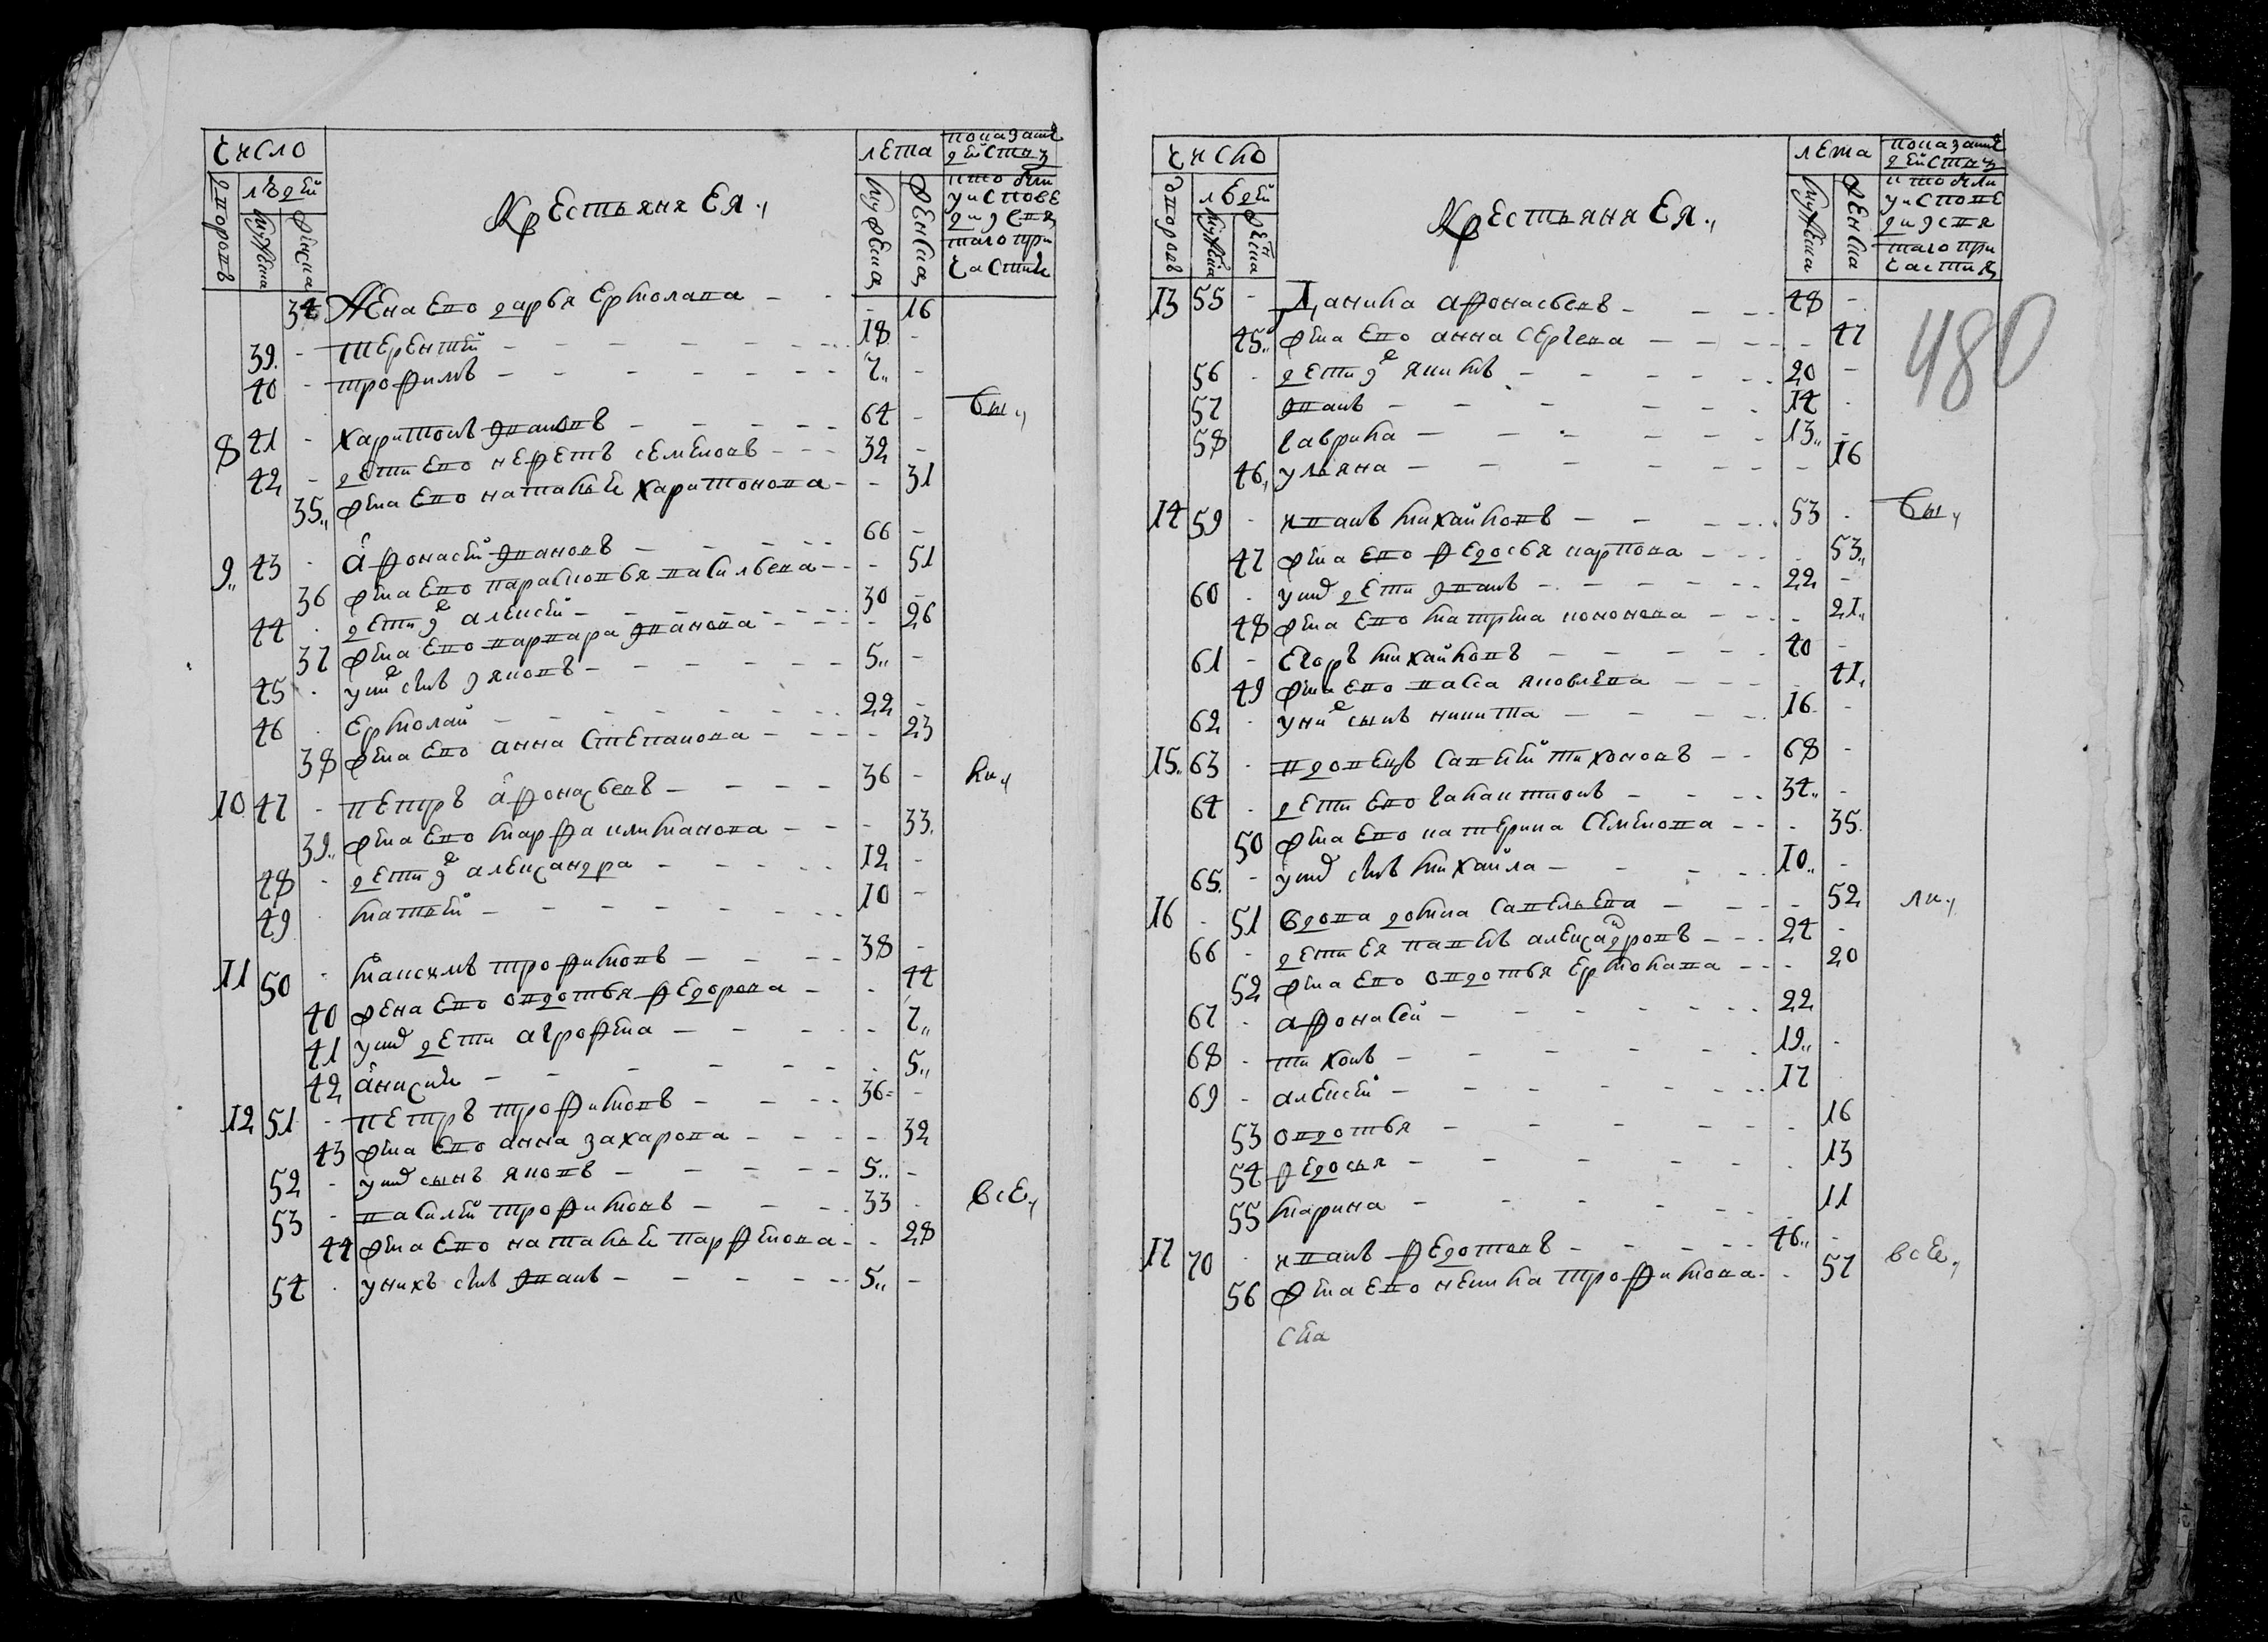 число
лета
показание действа
дворовъ
людей
мужеска
женска
Крестьяня Ея
мужеска
женска
кто были у исповеди и святаго причастия
34 Жена ево дарья Ермолава 16
39 терентей 18
40 трофимъ 7
8 41 харитонъ ивановъ 64 бы
42 дети ево нефетъ семеновъ 32
35 жена ево наталья харитонова 31
9 43 афонасей ивановъ 66
36 жена ево парасковья васильева 51
44 дети их алексей 30
37 жена ево варвара иванова 26
45 у них сынъ яковъ 5
46 Ермолай 22
38 жена ево анна Степанова 23
10 47 петръ афонасьевъ 36
39 жена ево марфа климанова 33
48 дети их александра 12
49 матвей 10
11 50 максимъ трофимовъ 38
40 жена ево овдотья федорова 44
41 у них дети агрофена 7
42 анисия 5
12 51 петръ трофимовъ 36
43 жена ево анна захарова 32
52 у них сынъ яковъ 5
53 василей трофимовъ 33 все
44 жена ево наталья парфенова 28
54 у нихъ сынъ иванъ 5
число
лета
показание действа
дворовъ
людей
мужеска
женска
Крестьяня Ея
мужеска
женска
кто были у исповеди и святаго причастия
480
13 55 Данила афонасьевъ 48
45 жена ево анна сергеева 47
56 дети их якимъ 20
57 иванъ 14
58 гаврила 13
46 ульяна 16
14 59 иванъ михайловъ 53 бы
47 жена ево федосья карпова 53
60 у них дети иванъ 22
48 жена ево матрена кононова 21
61 Егоръ михайловъ 40
49 жена ево васса яковлева 41
62 у них сынъ никита 16
15 63 вдовецъ савелей тихоновъ 68
64 дети ево галактионъ 34
50 жена ево катерина семенова 35
65 у них сынъ михайла 10
16 51 вдова домна савельева 52
66 дети ея павелъ александровъ 24
52 жена ево овдотья Ермолава 20
67 афонасей 22
68 тихонъ 19
69 алексей 17
53 овдотья 16
54 федосья 13
55 марина 11
17 70 иванъ федотовъ 46 все
56 жена ево ненила трофимова 57